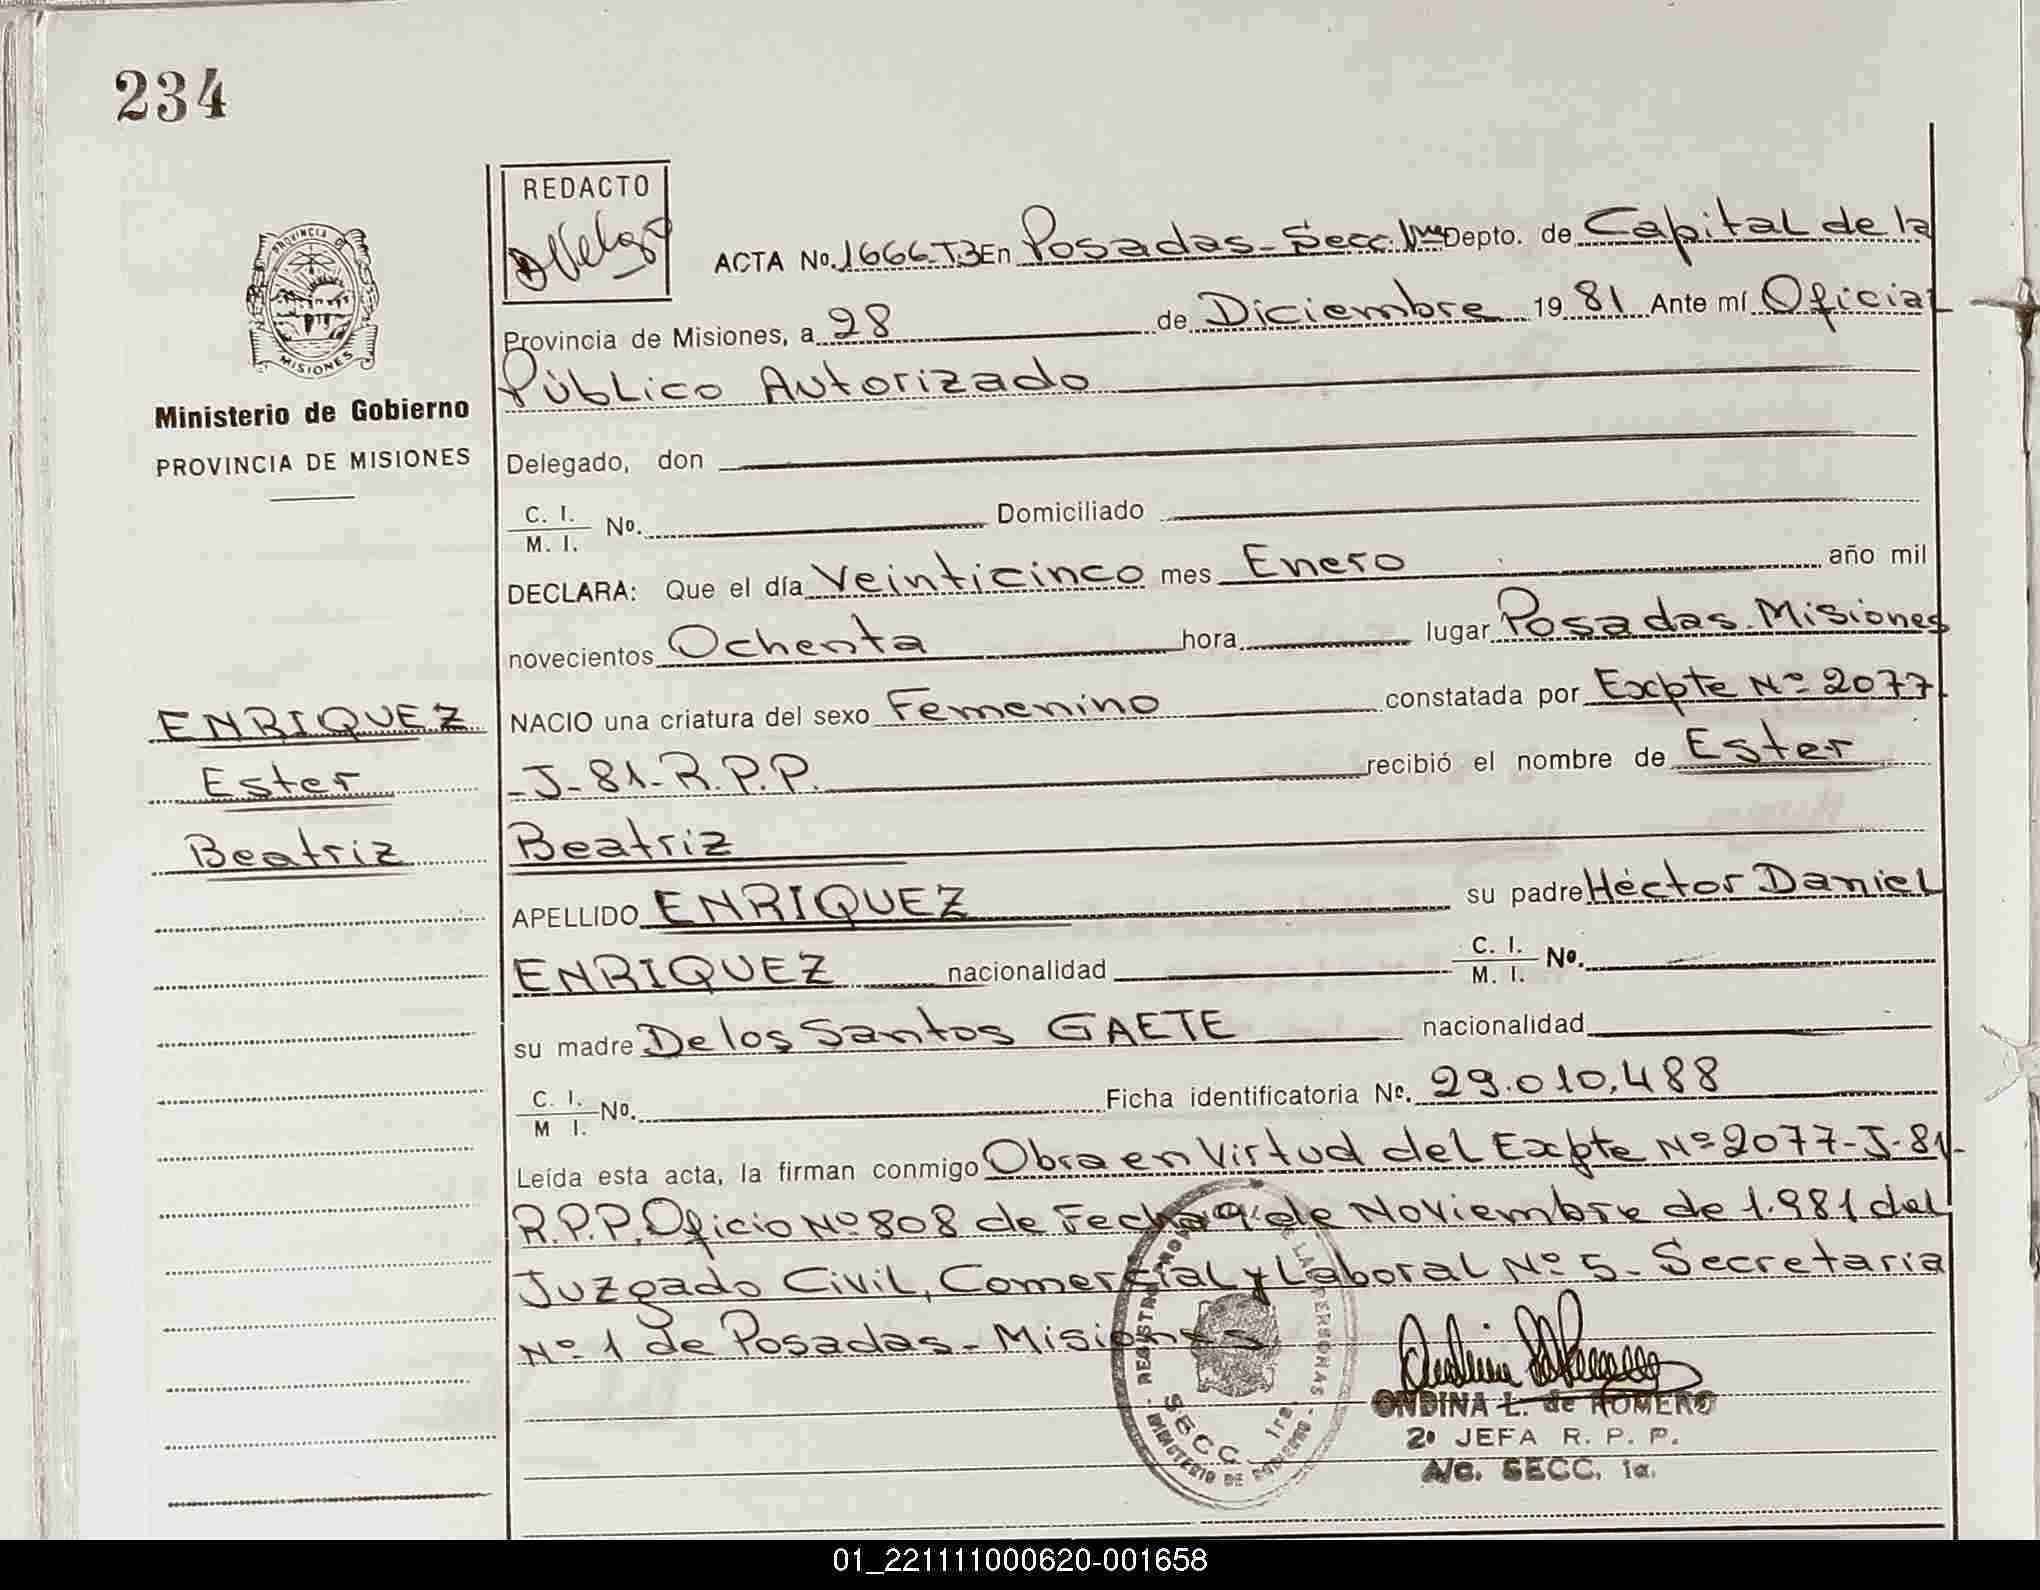 234
REDACTO
PROVINCIA DE
MISIONES
Ministerio de Gobierno
PROVINCIA DE MISIONES
ACTA No. 1666-T.3 En Posadas-Secc. 1ra Depto. de Capital de la
Provincia de Misiones, a 28 de Diciembre 19 81 Ante mí Oficial
Público Autorizado
Delegado, don
C. I.
M. I. No. Domiciliado
DECLARA: Que el día Veinticinco mes Enero año mil
novecientos Ochenta hora lugar Posadas. Misiones
NACIO una criatura del sexo Femenino constatada por Expte Nº 2077
-J-81-R.P.P. recibió el nombre de Ester
Beatriz
APELLIDO ENRIQUEZ su padre Héctor Daniel
ENRIQUEZ nacionalidad C. I. M. I. No.
su madre De los Santos GAETE nacionalidad
C. I.
M I. No. Ficha identificatoria No. 29.010.488
Leída esta acta, la firman conmigo Obra en Virtud del Expte Nº 2077-J-81-
R.P.P. Oficio Nº 808 de Fecha 9 de Noviembre de 1.981 del
Juzgado Civil, Comercial y Laboral Nº 5- Secretaria
Nº 1 de Posadas-Misiones
ENRIQUEZ
Ester
Beatriz
REGISTRO PROV. DE LAS PERSONAS
SECC. 1ra.
MINISTERIO DE GOBIERNO
ONDINA L. de ROMERO
2º JEFA R. P. P.
A/c. SECC. 1a.
01_221111000620-001658